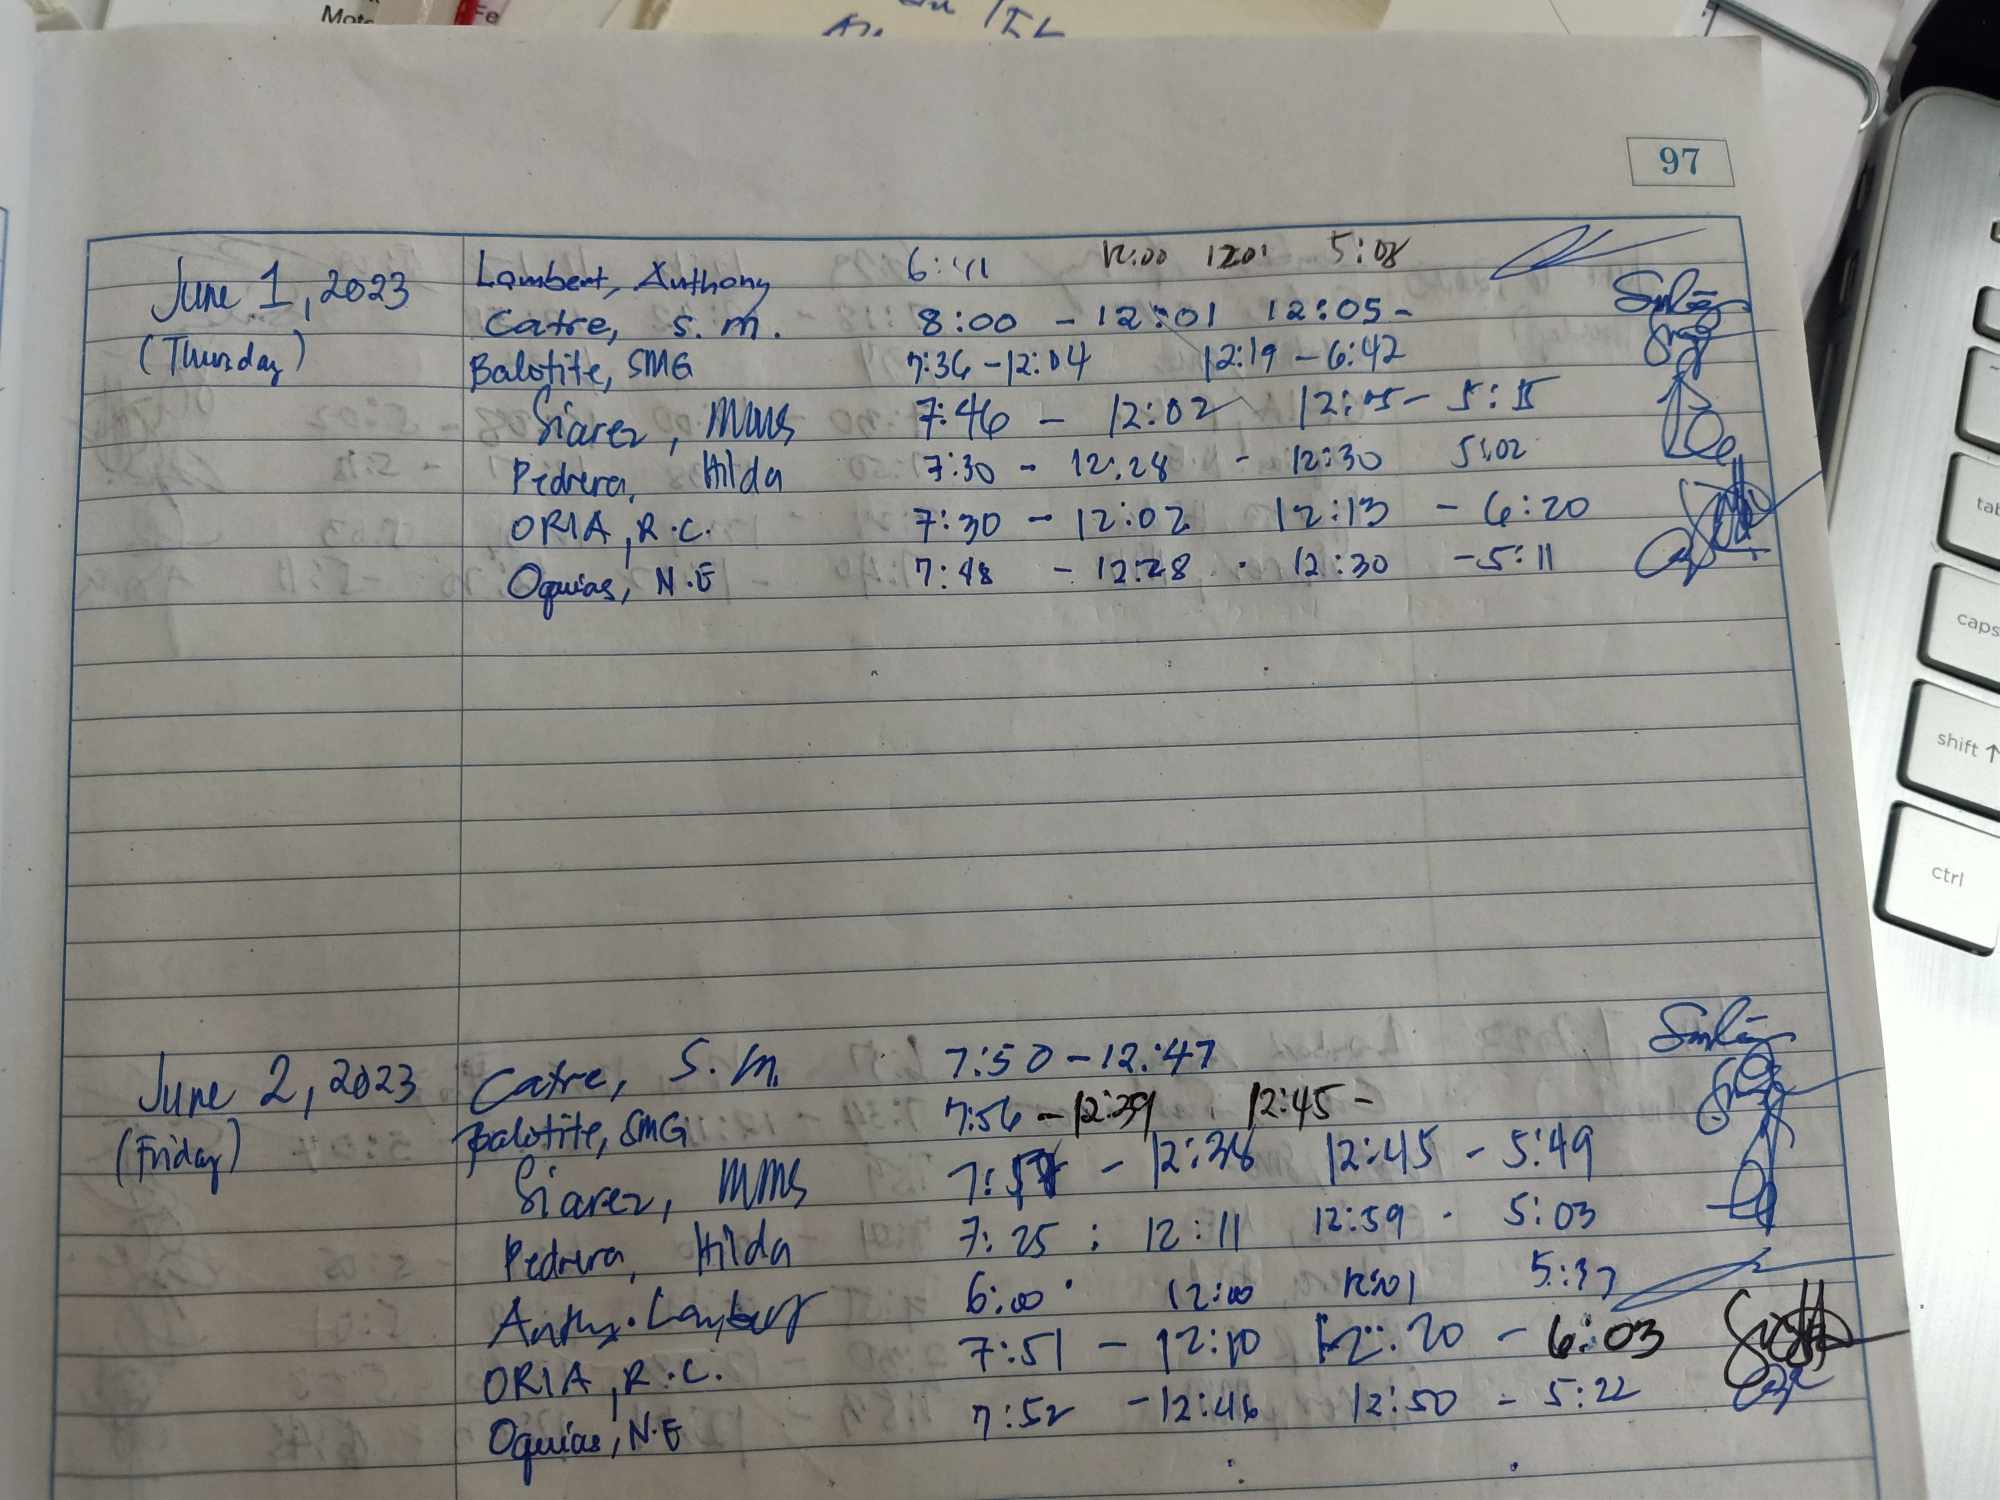 Fe
97
June 1, 2023
(Thursday)
Lambert, Anthony 12:00 1201 5:08
Catre, S.M. 8:00 - 12:01 12:05-
Balotite, SMG 7:36-12:04 12:19-6:42
Siarez, MMS 7:46 - 12:02 12:05-
Pedrera, Hilda 7:30 - 12:28 - 12:30 5:02
ORIA, R.C. 7:30 - 12:02 12:13 - 6:20
Oquias, N.E 7:48 - 12:28 - 12:30 -5:11
June 2, 2023
(Friday)
Catre, S.M. 7:50-12:47
Balotite, SMG 7:56-12:39 12:45-
Siarez, MMS - 12:38 12:45 - 5:49
Pedrera, Hilda 7:25 : 12:11 12:59 - 5:03
6:00 12:00 12:01 5:37
ORIA, R.C. 7:51 - 12:10 12:20 - 6:03
Oquias, N.E 7:52 -12:46 12:50 - 5:22
tab
caps
shift ↑
ctrl